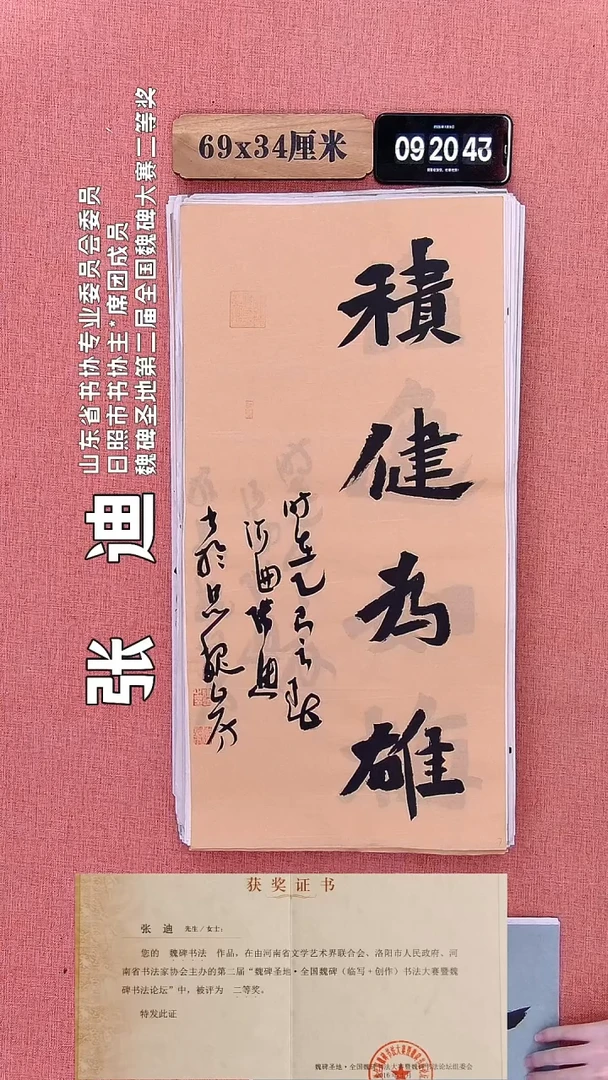 69x34厘米
09 20 43
山东省书协专业委员会委员
日照市书协主*席团成员
魏碑圣地第二届全国魏碑大赛二等奖
张 迪
積健為雄
时在乙巳之春
河曲张迪
书於思魏斋
获奖证书
张 迪 先生/女士:
您的 魏碑书法 作品,在由河南省文学艺术界联合会、洛阳市人民政府、河
南省书法家协会主办的第二届“魏碑圣地·全国魏碑(临写+创作)书法大赛暨魏
碑书法论坛”中,被评为 二等奖。
特发此证
魏碑圣地·全国魏碑书法大赛暨魏碑书法论坛组委会